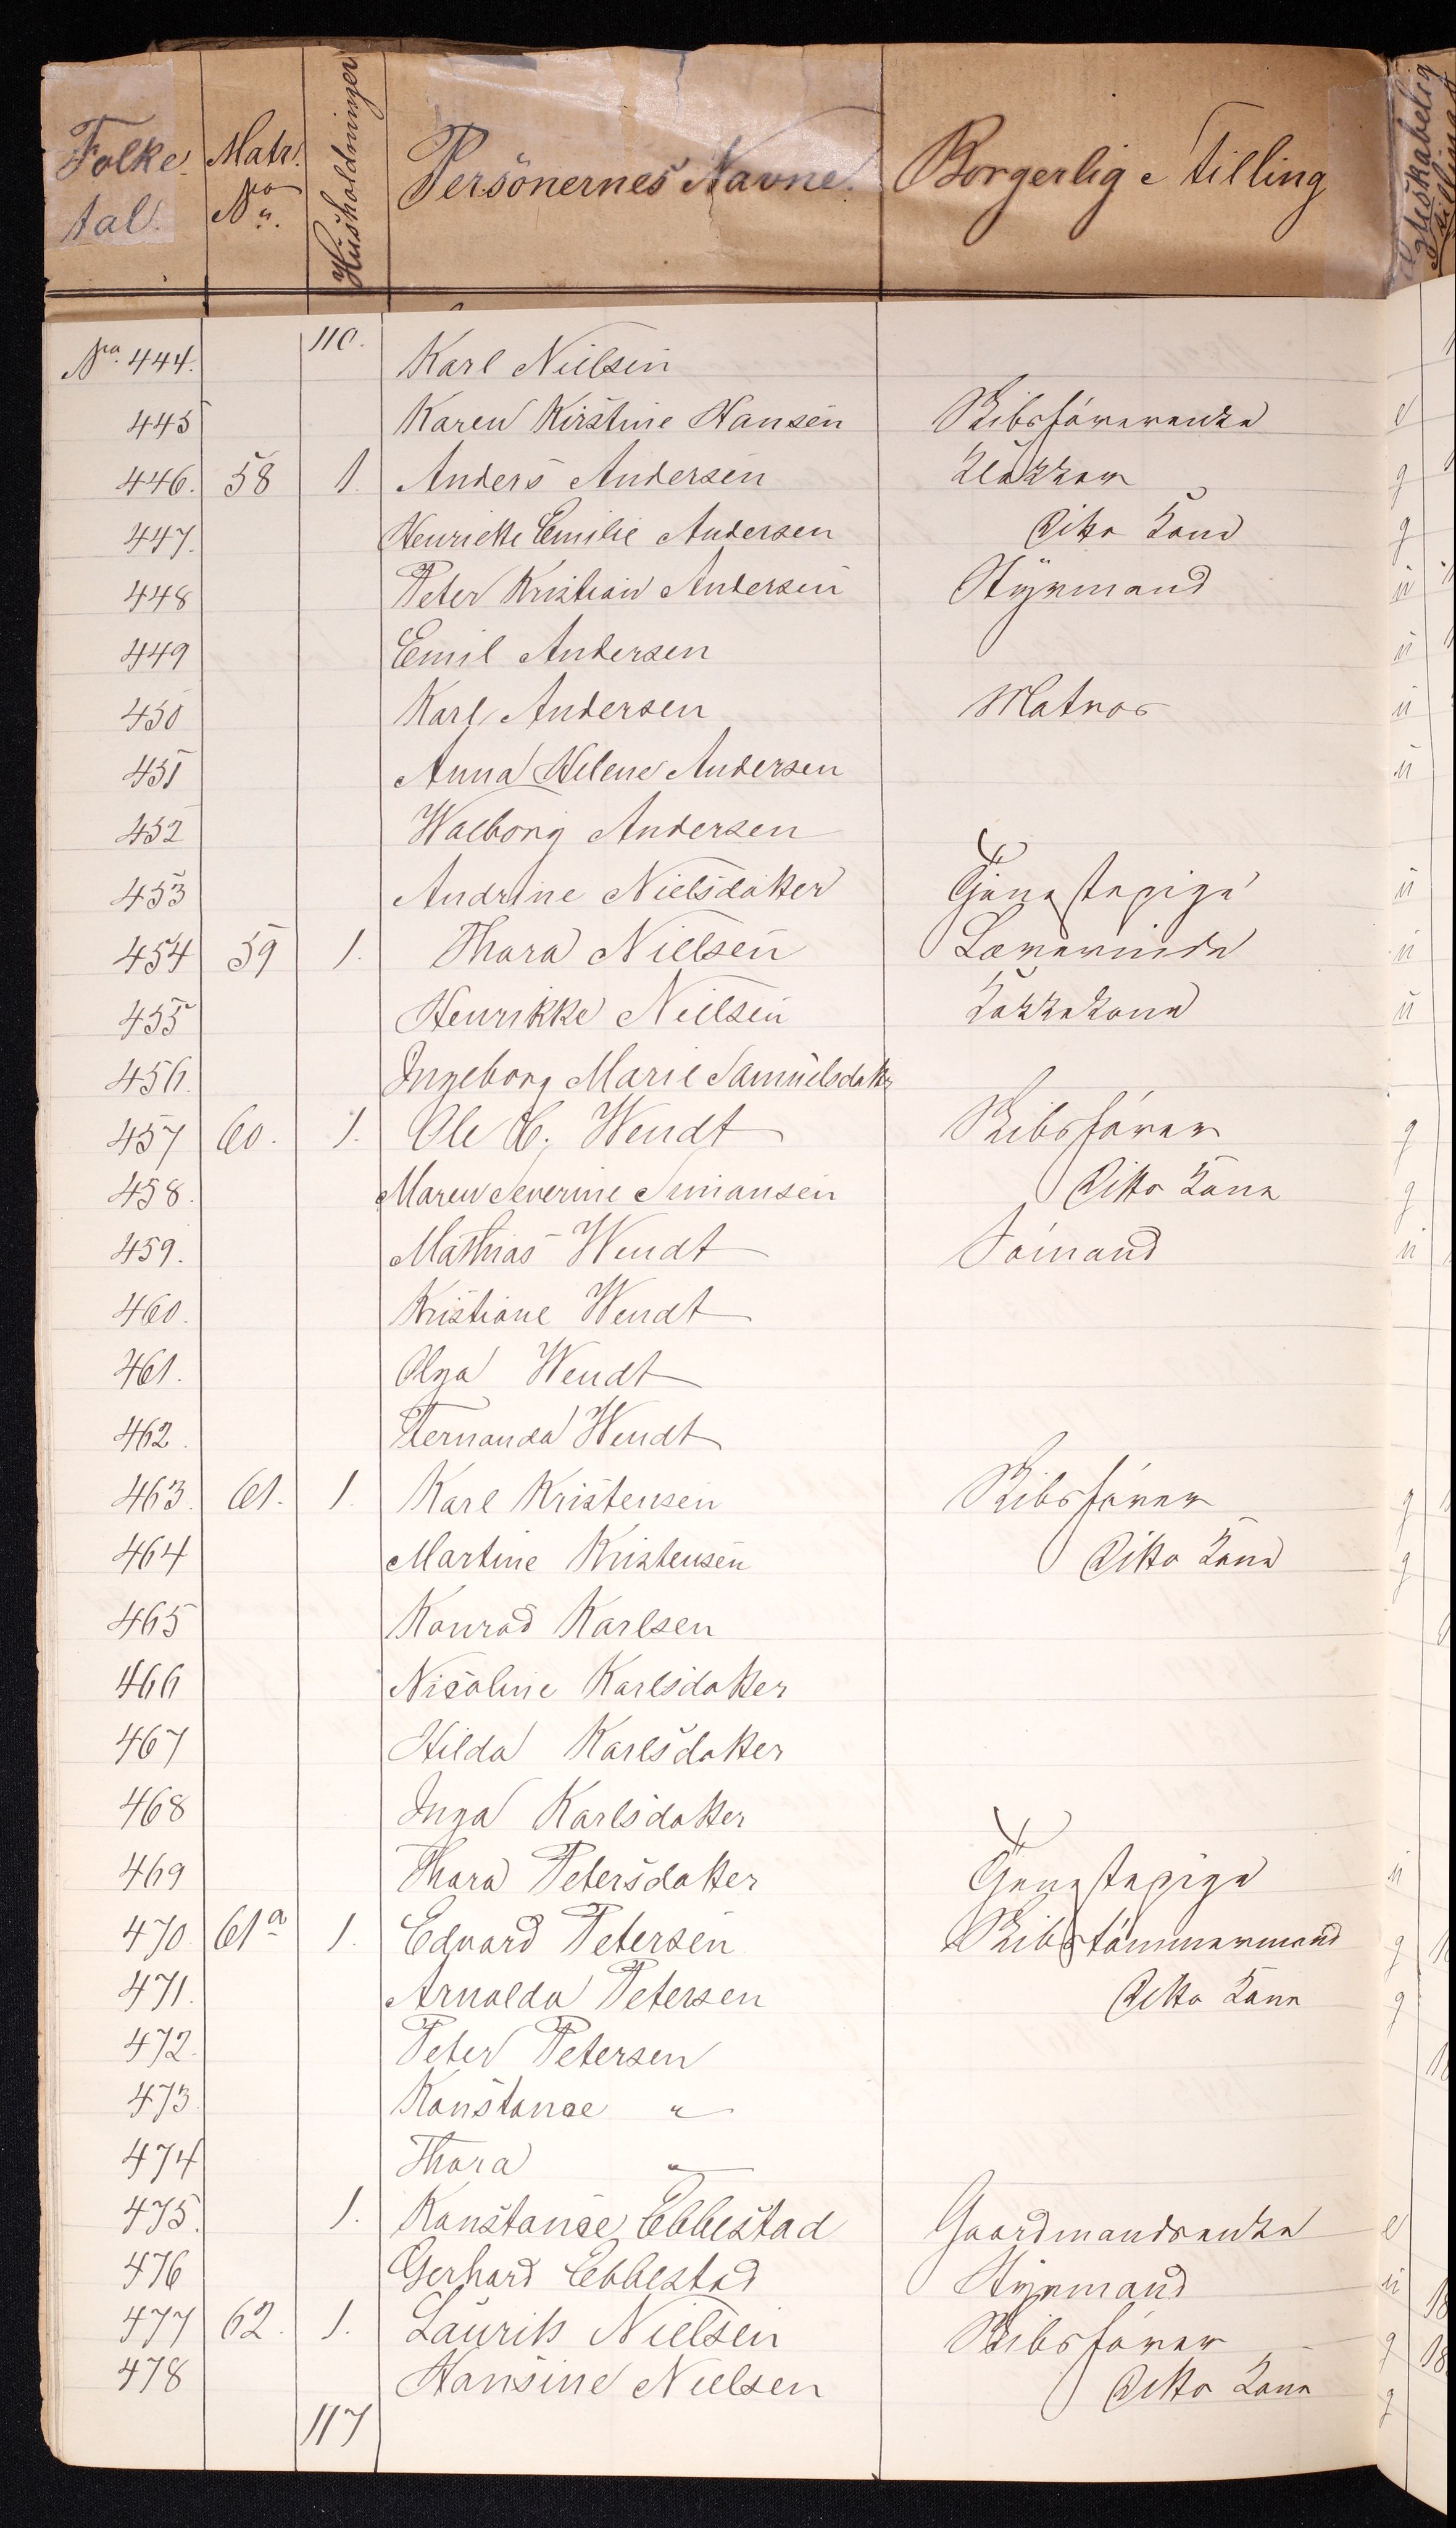 Folke tal. Matr. No. Husholdninger Personernes Navne. Borgerlig Stilling
110.
No. 444. Karl Nielsen
445 Karen Kirstine Hansen Skibsførerenke e
446. 58 1. Anders Andersen Klokker g
447. Henrikke Emilie Andersen Ditto Kone g
448 Peter Kristian Andersen Styrmand u
449 Emil Andersen u
450 Karl Andersen Matros u
451 Anna Helene Andersen u
452 Walborg Andersen
453 Andrine Nielsdatter Tjenestepige u
454 59 1. Thora Nielsen Lærerinde u
455 Henrikke Nielsen Kokkekone u
456. Ingeborg Marie Samuelsdatter
457 60. 1. Ole C. Wendt Skibsfører g
458. Maren Severine Simonsen Ditto Kone g
459. Mathias Wendt Sømand u
460. Kristiane Wendt
461. Olga Wendt
462. Fernanda Wendt
463. 61. 1. Karl Kristensen Skibsfører g
464 Martine Kristensen Ditto Kone g
465 Konrad Karlsen
466 Nicoline Karlsdatter
467 Hilda Karlsdatter
468 Inga Karlsdatter
469 Thora Petersdatter Tjenestepige u
470 61a 1. Edvard Petersen Skibstømmermand g
471. Arnolda Petersen Ditto Kone g
472. Peter Petersen
473. Konstance "
474 Thora "
475. 1. Konstance Ebbestad Gaardmandsenke e
476 Gerhard Ebbestad Styrmand u
477 62. 1. Laurits Nielsen Skibsfører g 18
478 Hansine Nielsen Ditto Kone g
117